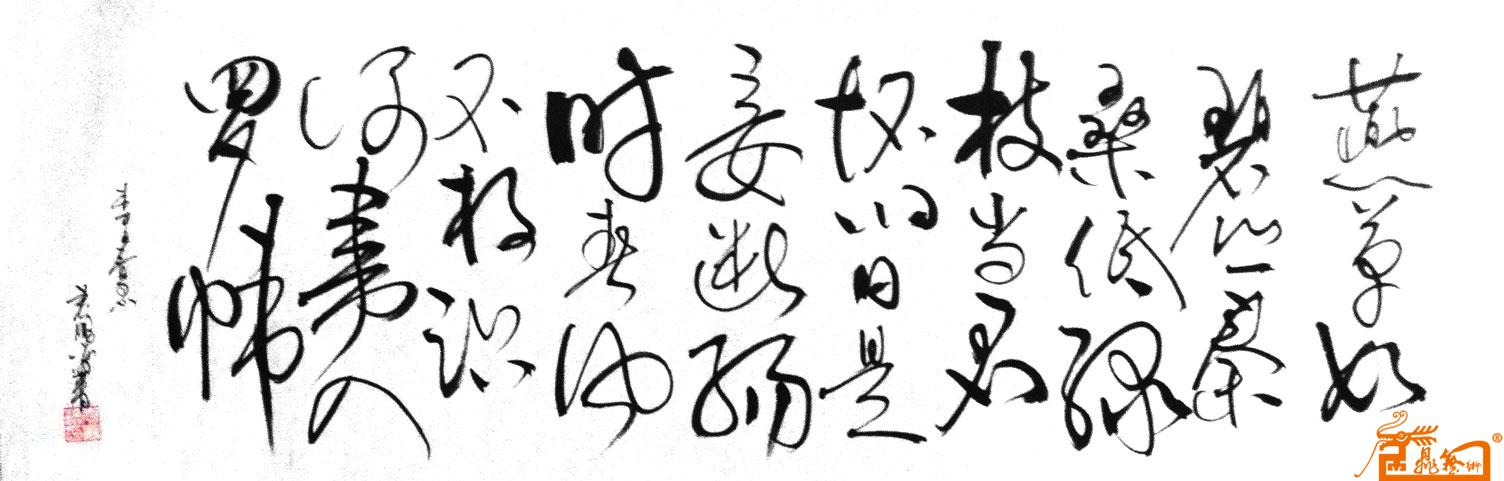 燕草如
碧丝秦
桑低绿
枝当君
怀归日是
妾断肠
时春风
不相识
何事入
罗帏